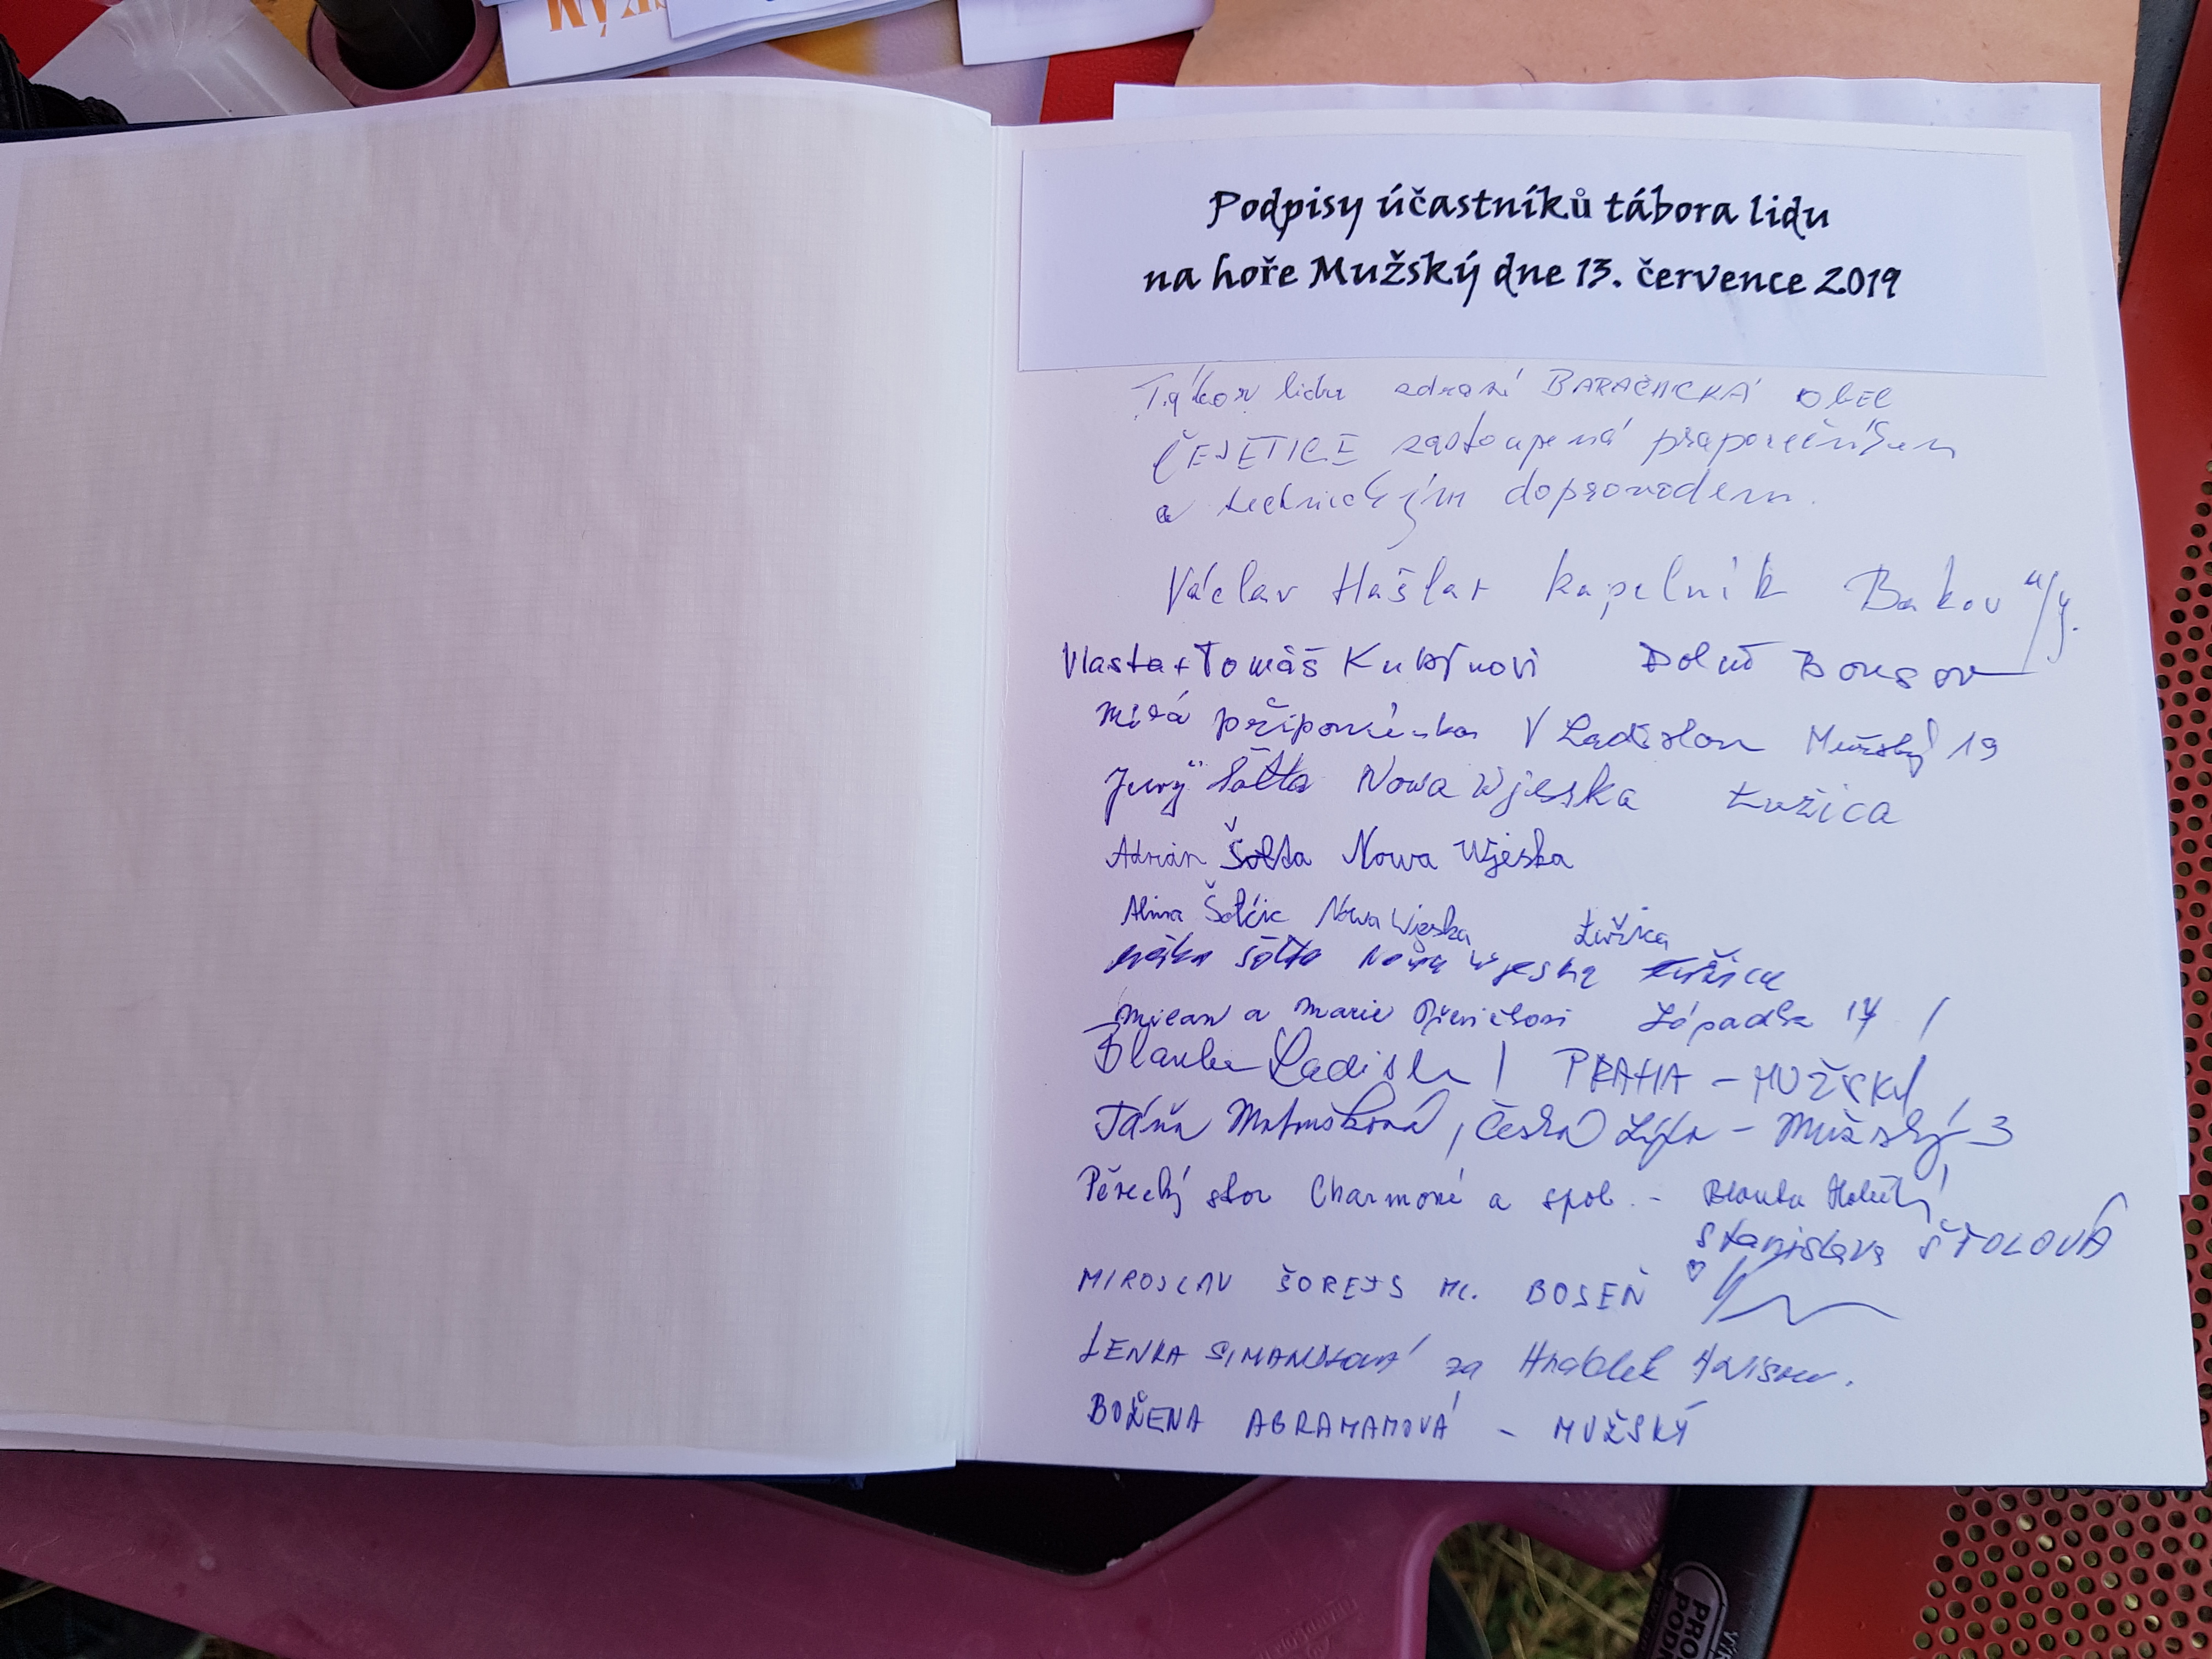 SKÁM
Podpisy účastníků tábora lidu
na hoře Mužský dne 13. července 2019
Tábor lidu zdraví BARÁČNICKÁ OBEC
ČEJETICE zastoupená praporečníkem
a technickým doprovodem.
Václav Hašlar kapelník Bakov n/J.
Vlasta + Tomáš Dolní Bousov
Milá připomínka V Ladislav Mužský 19
Jurij Šołta Nowa Wjeska Łužica
Adrian Šołta Nowa Wjeska
Alina Šołćic Nowa Wjeska Łužica
Šołta Nowa Wjeska Łužica
Milan a Marie Západka 17
Blanka Ladisl PRAHA - MUŽSKÝ
Táňa Matoušková, Česká Lípa - Mužský 3
Pěvecký sbor Charmoné a spol. - Blanka
Stanislava ŠTOLOVÁ
MIROSLAV ŠOREJS ML. BOSEŇ
LENKA SIMANDLOVÁ za Hrádek
BOŽENA ABRAHAMOVÁ - MUŽSKÝ